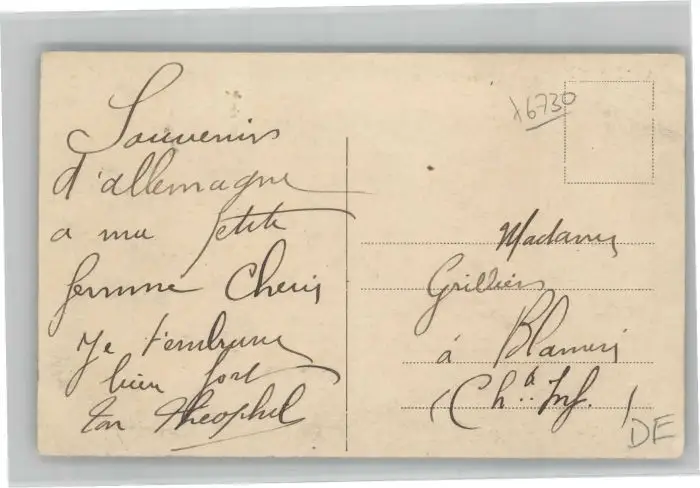 Souvenirs
d'allemagne
a ma petite
femme Cheri
Je t'embrasse
bien fort
ton Théophil
x6730
Madame
Grilliers
à Blameré
(Ch.te Inf.)
DE